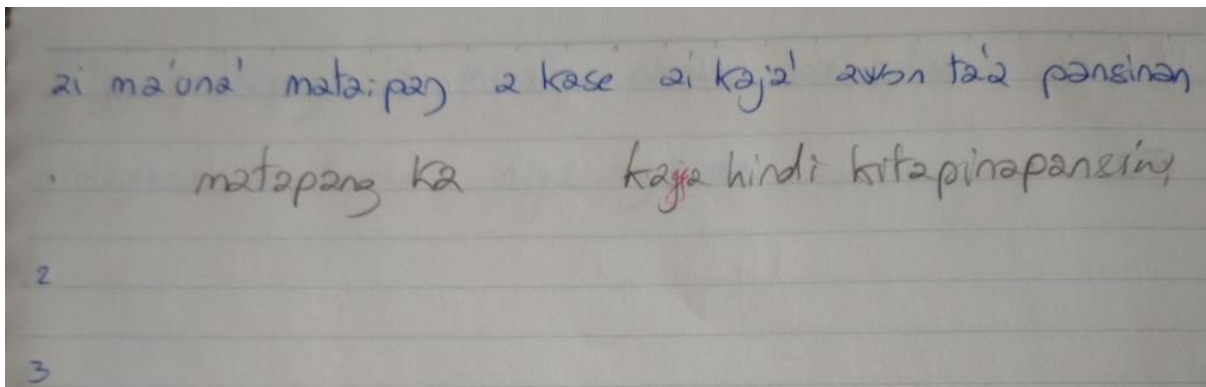 ai ma'ona' mata:pang a kase ai kaja' awon ta'a pansinan
. matapang ka kaya hindi kitapinapansing
2
3